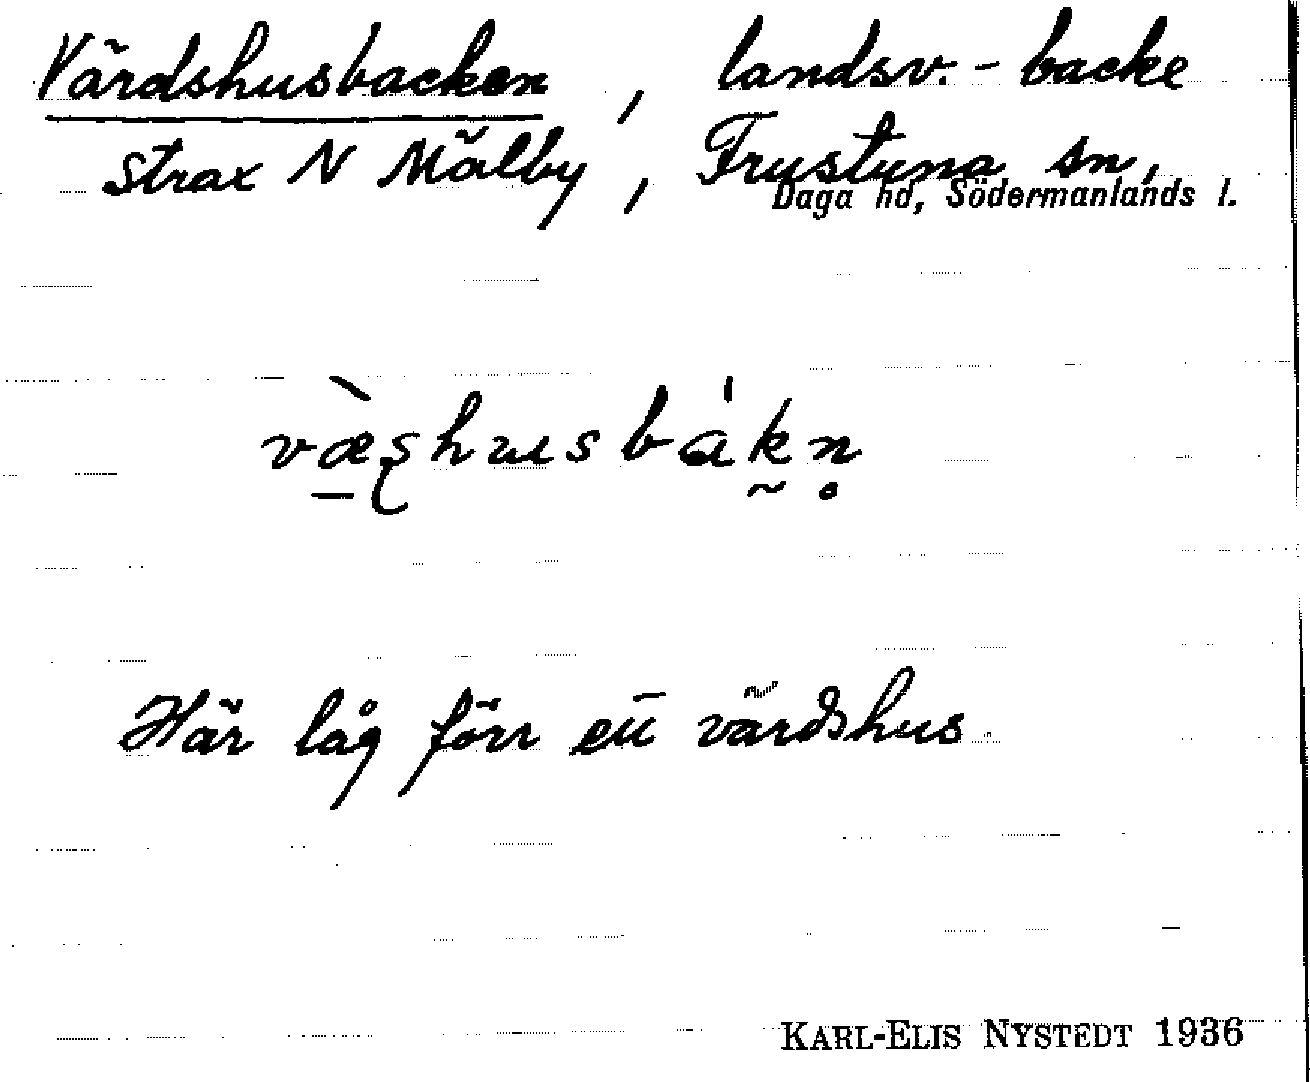 Värdshusbacken, landsv.-backe
strax N Mälby, Frustuna sn,
Daga hd, Södermanlands l.
væ̀ʂhusbák̰n̥
Här låg förr ett värdshus.
KARL-ELIS NYSTEDT 1936